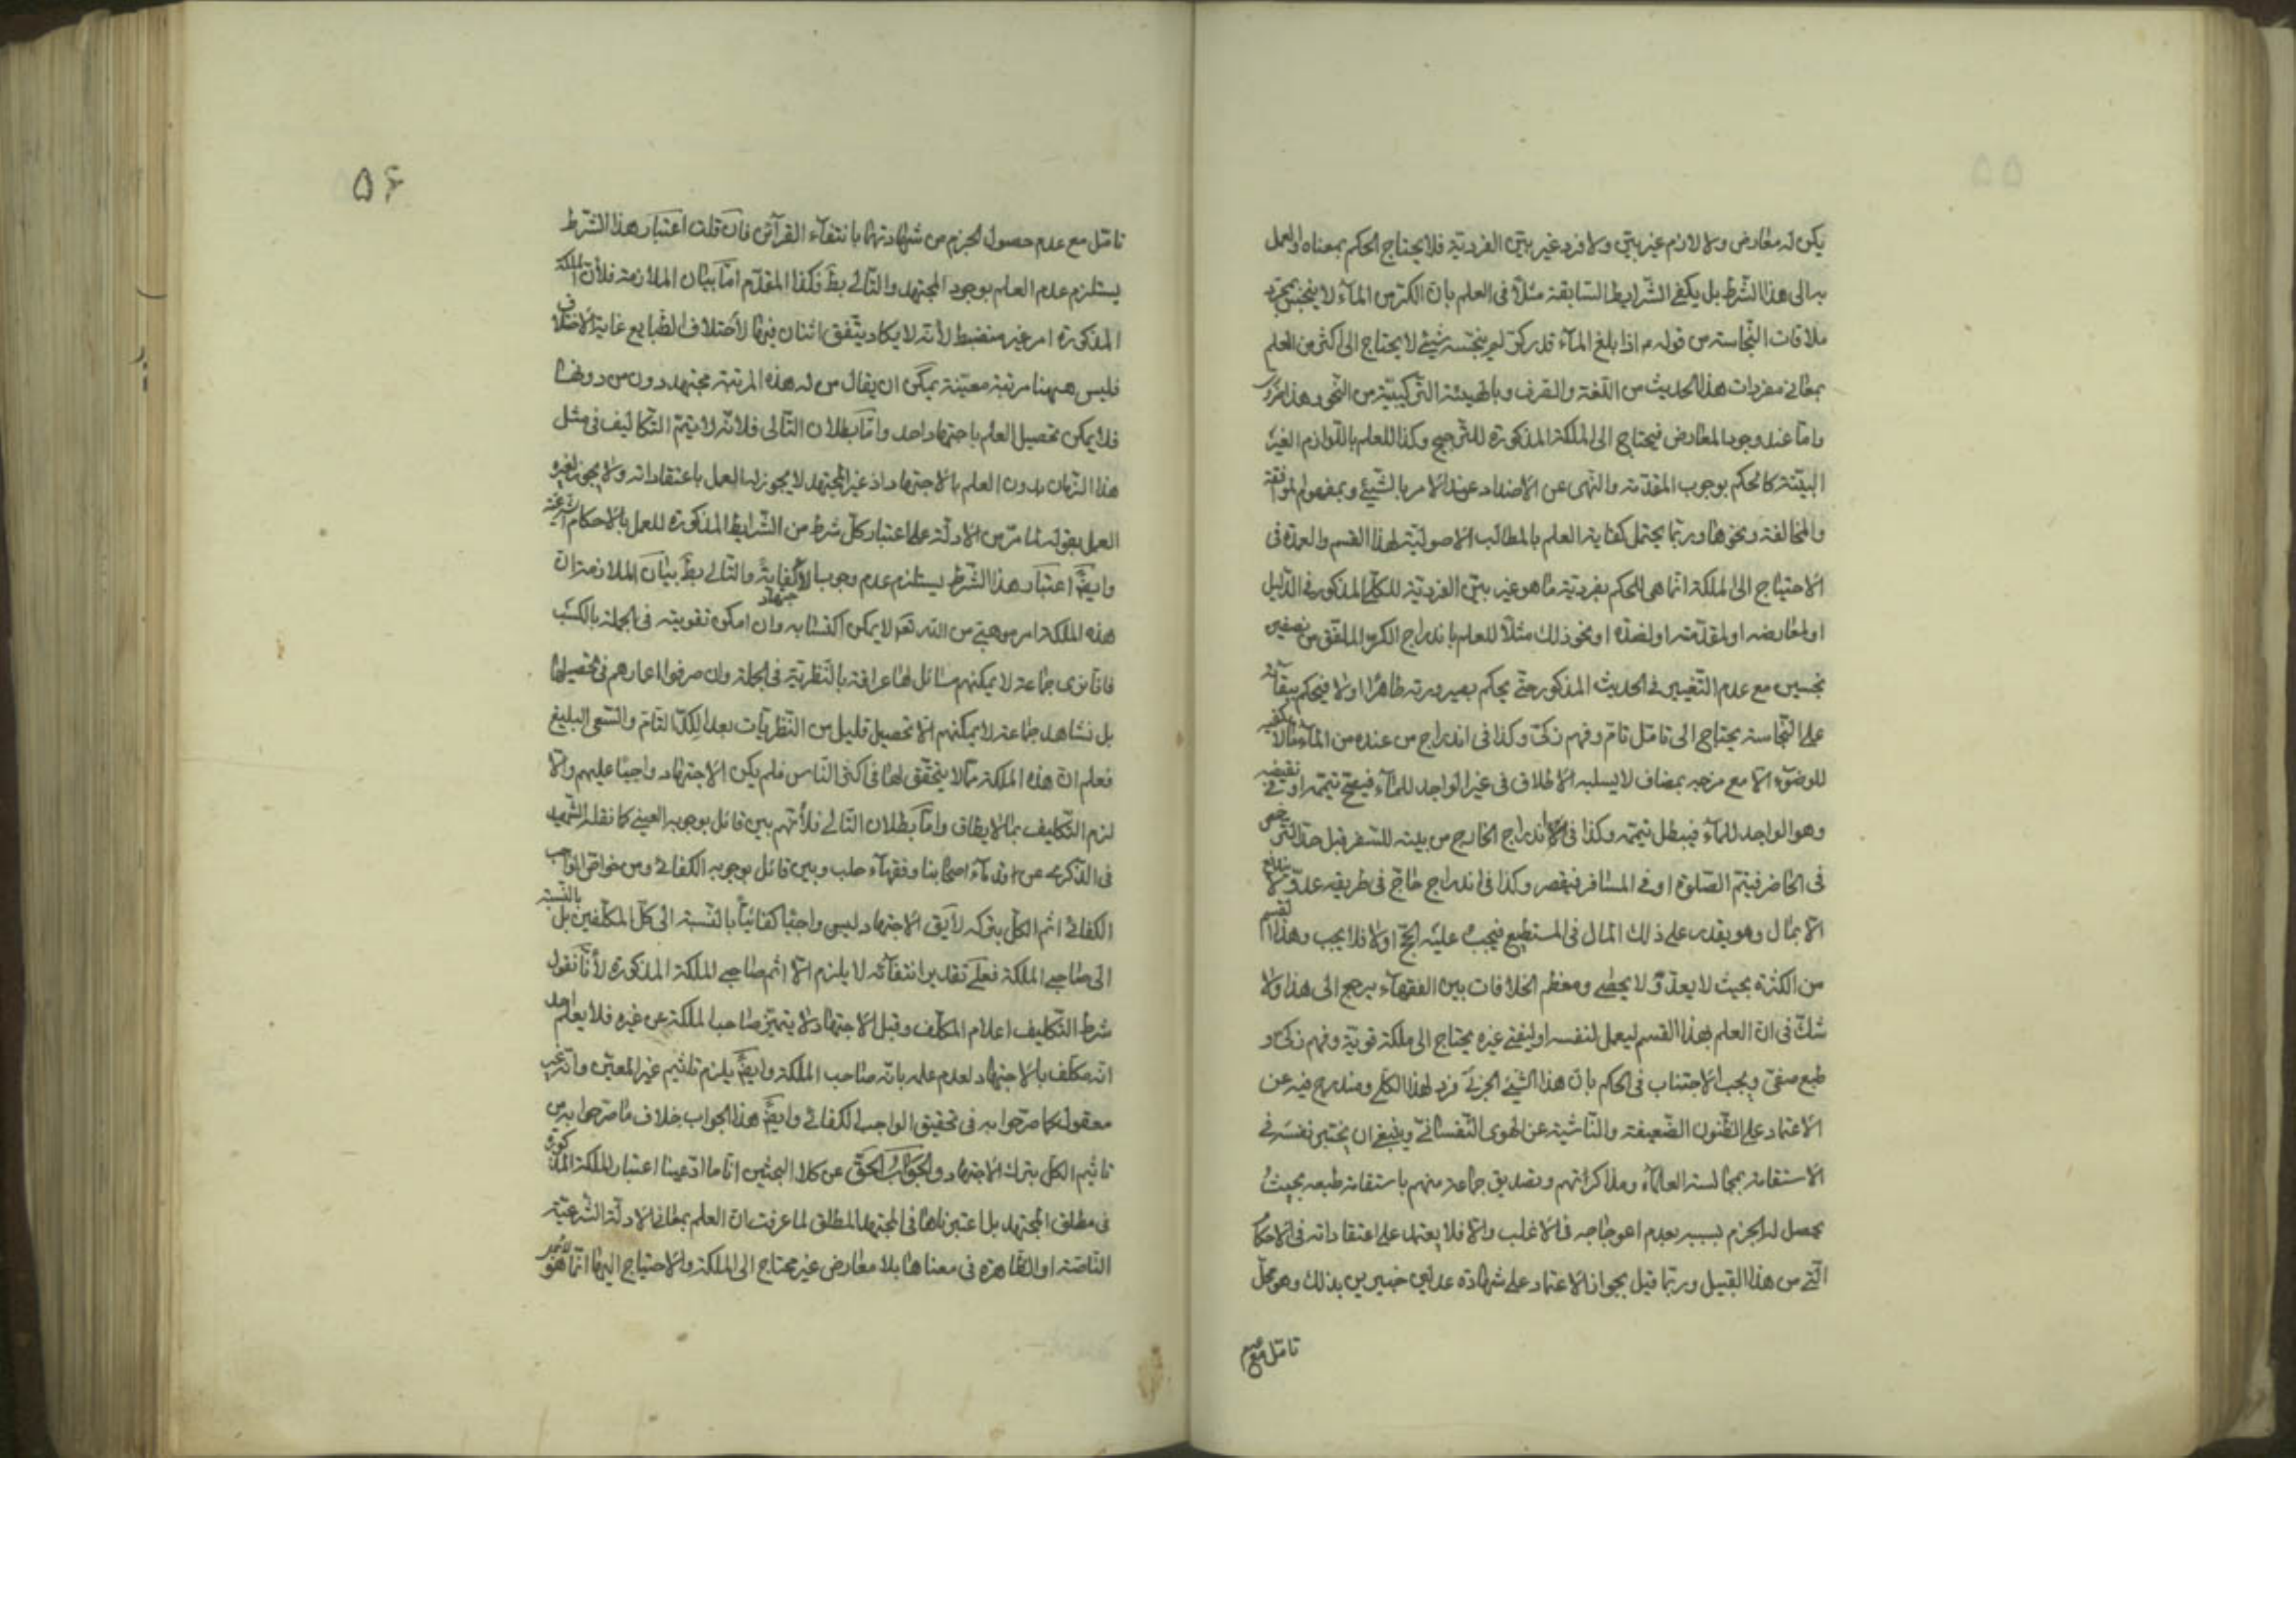 ۵۵
يكن له معارض ولا لازم غير بيّن ولا فرد غير بيّن الفرديّة فلا يحتاج الحكم بمعناه او العمل
به الى هذا الشرط بل يكفى الشّرايط السّابقة مثلاً فى العلم بانّ الكرّ من المآء لا ينجس بمجرّد
ملاقات النّجاسة من قوله م اذا بلغ المآء قدر كرّ لم ينجّسه شيئ لا يحتاج الى اكثر من العلم
بمعانى مفردات هذا الحديث من اللّغة والصّرف وبالهيئة التّركيبيّة من النّحو وهذا ضرورى
وامّا عند وجود المعارض فيحتاج الى الملكة المذكورة للتّرجيح وكذا للعلم باللّوازم الغير
البيّنة كالحكم بوجوب المقدّمة والنّهى عن الاضداد عند الامر بالشّيئ وبمفهوم الموافقة
والمخالفة ونحوها وربّما يحتمل كفاية العلم بالمطالب الاصوليّة لهذا القسم والعمدة فى
الاحتياج الى الملكة انّما هى للحكم بفرديّة ما هو غير بيّن الفرديّة للكلّى المذكور فى الدّليل
او لمعارضه او لمقدّمته او لضدّه او نحو ذلك مثلاً للعلم باندراج الكرّ الملفّق من نصفين
نجسين مع عدم التّغيير فى الحديث المذكور حتّى يحكم بصيرورته طاهرًا اولا فيحكم ببقآئه
على النّجاسة يحتاج الى تامّل تامّ وفهم زكىّ وكذا فى اندراج من عنده من المآء ما لا يكفيه
للوضوء الّا مع مزجه بمضاف لا يسلبه الاطلاق فى غير الواجد للمآء فيصحّ تيمّمه او فى نقيضه
وهو الواجد للمآء فيبطل تيمّمه وكذا فى الاندراج الخارج من بيته للسّفر قبل حدّ التّرخّص
فى الحاضر فيتمّ الصّلوة او فى المسافر فيقصر وكذا فى اندراج حاجّ فى طريقه عدوّ لا يندفع
الّا بمال وهو يقدر على ذلك المال فى المستطيع فيجب عليه الحجّ اولا فلا يجب وهذا القسم
من الكثرة بحيث لا يعدّ ولا يحصى ومعظم الخلافات بين الفقهآء يرجع الى هذا ولا
شكّ فى انّ العلم بهذا القسم ليعمل لنفسه او ليفتى غيره يحتاج الى ملكة قويّة وفهم زكىّ و
طبع صفىّ ويجب الاجتناب فى الحكم بان هذا الشّيئ الجزئى فرد لهذا الكلّى ومندرج فيه عن
الاعتماد على الظّنون الضّعيفة والنّاشية عن الهوى النّفسانى وينبغى ان يختبر نفسه فى
الاستقامة بمجالسة العلمآء ومذاكراتهم وتصديق جماعة منهم باستقامة طبعه بحيث
يحصل له الجزم بسببه بعدم اعوجاجه فى الاغلب والّا فلا يعتمد على اعتقاداته فى الاحكام
الّتى من هذا القبيل وربّما قيل بجواز الاعتماد على شهادة عدلين خبيرين بذلك وهو محلّ
تامّل مع
۵۶
تامّل مع عدم حصول الجزم من شهادتهما بانتفآء القرآئن فان قلت اعتبار هذا الشّرط
يستلزم عدم العلم بوجود المجتهد والتّالى بط فكذا المقدّم امّا بيان الملازمة فلأنّ الملكة
المذكورة امر غير منضبط لأنّه لا يكاد يتّفق اثنان فيها لأختلاف الطّبايع غاية الاختلاف
فليس ههنا مرتبة معيّنة يمكن ان يقال من له هذه المرتبة مجتهد دون من دونها
فلا يمكن تحصيل العلم باجتهاد احد وامّا بطلان التّالى فلانّه لا يتمّ التّكاليف فى مثل
هذا الزّمان بدون العلم بالاجتهاد اذ غير المجتهد لا يجوز له العمل باعتقاداته ولا يجوز لغيره
العمل بقوله لما مرّ من الادلّة على اعتبار كلّ شرط من الشّرايط المذكورة للعمل بالاحكام الشّرعيّة
وايضًا اعتبار هذا الشّرط يستلزم عدم وجوب الاجتهاد كفاية والتّالى بط بيان الملازمة انّ
هذه الملكة امر موهبى من اللّه تعالى لا يمكن اكتسابه وان امكن تقويته فى الجملة بالكسب
فانّا نرى جماعة لا يمكنهم مسائل لها عراقة بالنّظريّة فى الجملة وان صرفوا اعمارهم فى تحصيلها
بل نشاهد جماعة لا يمكنهم الّا تحصيل قليل من النّظريّات بعد الكدّ التّام والسّعى البليغ
فعلم انّ هذه الملكة ممّا لا يتحقّق لها فى اكثر النّاس فلم يكن الاجتهاد واجبًا عليهم والّا
لزم التّكليف بما لا يطاق وامّا بطلان التّالى فلأنّهم بين قائل بوجوبه العينى كما نقله الشّهيد
فى الذّكرى عن قدمآء اصحابنا وفقهآء حلب وبين قائل بوجوبه الكفائى ومن خواصّ الواجب
الكفائى اثم الكلّ بتركه لا يق الاجتهاد ليس واجبًا كفائيًّا بالنّسبة الى كلّ المكلّفين بل بالنّسبة
الى صاحبى الملكة فعلى تقدير انتفآئه لا يلزم الّا اثم صاحبى الملكة المذكورة لأنّا نقول
شرط التّكليف اعلام المكلّف وقبل الاجتهاد لا يتميّز صاحب الملكة عن غيره فلا يعلم احد
انّه مكلّف بالاجتهاد لعدم علمه بانّه صاحب الملكة وايضًا يلزم تاثيم غير المعيّن وانّه غير
معقول كما صرّحوا به فى تحقيق الواجب الكفائى وايضًا هذا الجواب خلاف ما صرّحوا به من
تاثيم الكلّ بترك الاجتهاد والجواب الحقّ عن كلا البحثين انّا ما ادّعينا اعتبار الملكة المذكورة
فى مطلق المجتهد بل اعتبرناها فى المجتهد المطلق لما عرفت انّ العلم بمعانى الادلّة الشّرعيّة
النّاصّة او الظّاهرة فى معناها بلا معارض غير محتاج الى الملكة والاحتياج اليها انّما هو